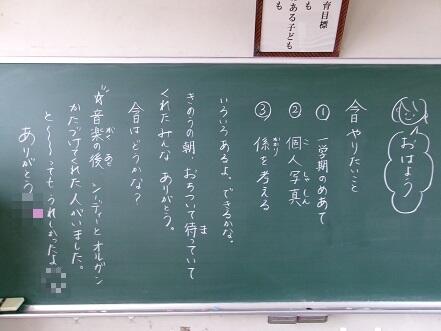 育目標
ある子ども
も
おはよう
今日やりたいこと
① 一学期のめあて
② 個人写真
こじんしゃしん
③ 係を考える
かかり
いろいろあるよ。できるかな。
きのうの朝 おちついて待っていて
ま
くれたみんな ありがとう。
今日はどうかな?
☆音楽の後、シーディとオルガン
がく あと
かたづけてくれた人がいました。
と〜〜〜ってもうれしかったよ
ありがとう